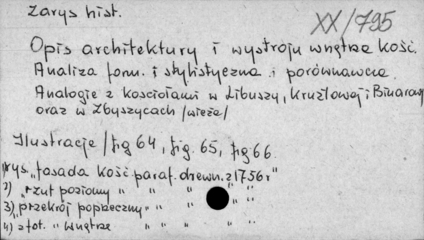 Zarys hist.
XX/795
Opis architektury i wystroju wnętrza kośc.
Analiza form. i stylistyczna i porównawcza.
Analogie z kościołami w Libuszy, Krużlowej i Binarowej
oraz w Zbyszycach /wieża/
Ilustracje / fig 64, fig. 65, fig 66
rys. "fasada kośc. paraf. drewn. z 1756 r"
2) "rzut poziomy " " " "
3) "przekrój poprzeczny " " " "
4) 2 fot. " wnętrze " " " "